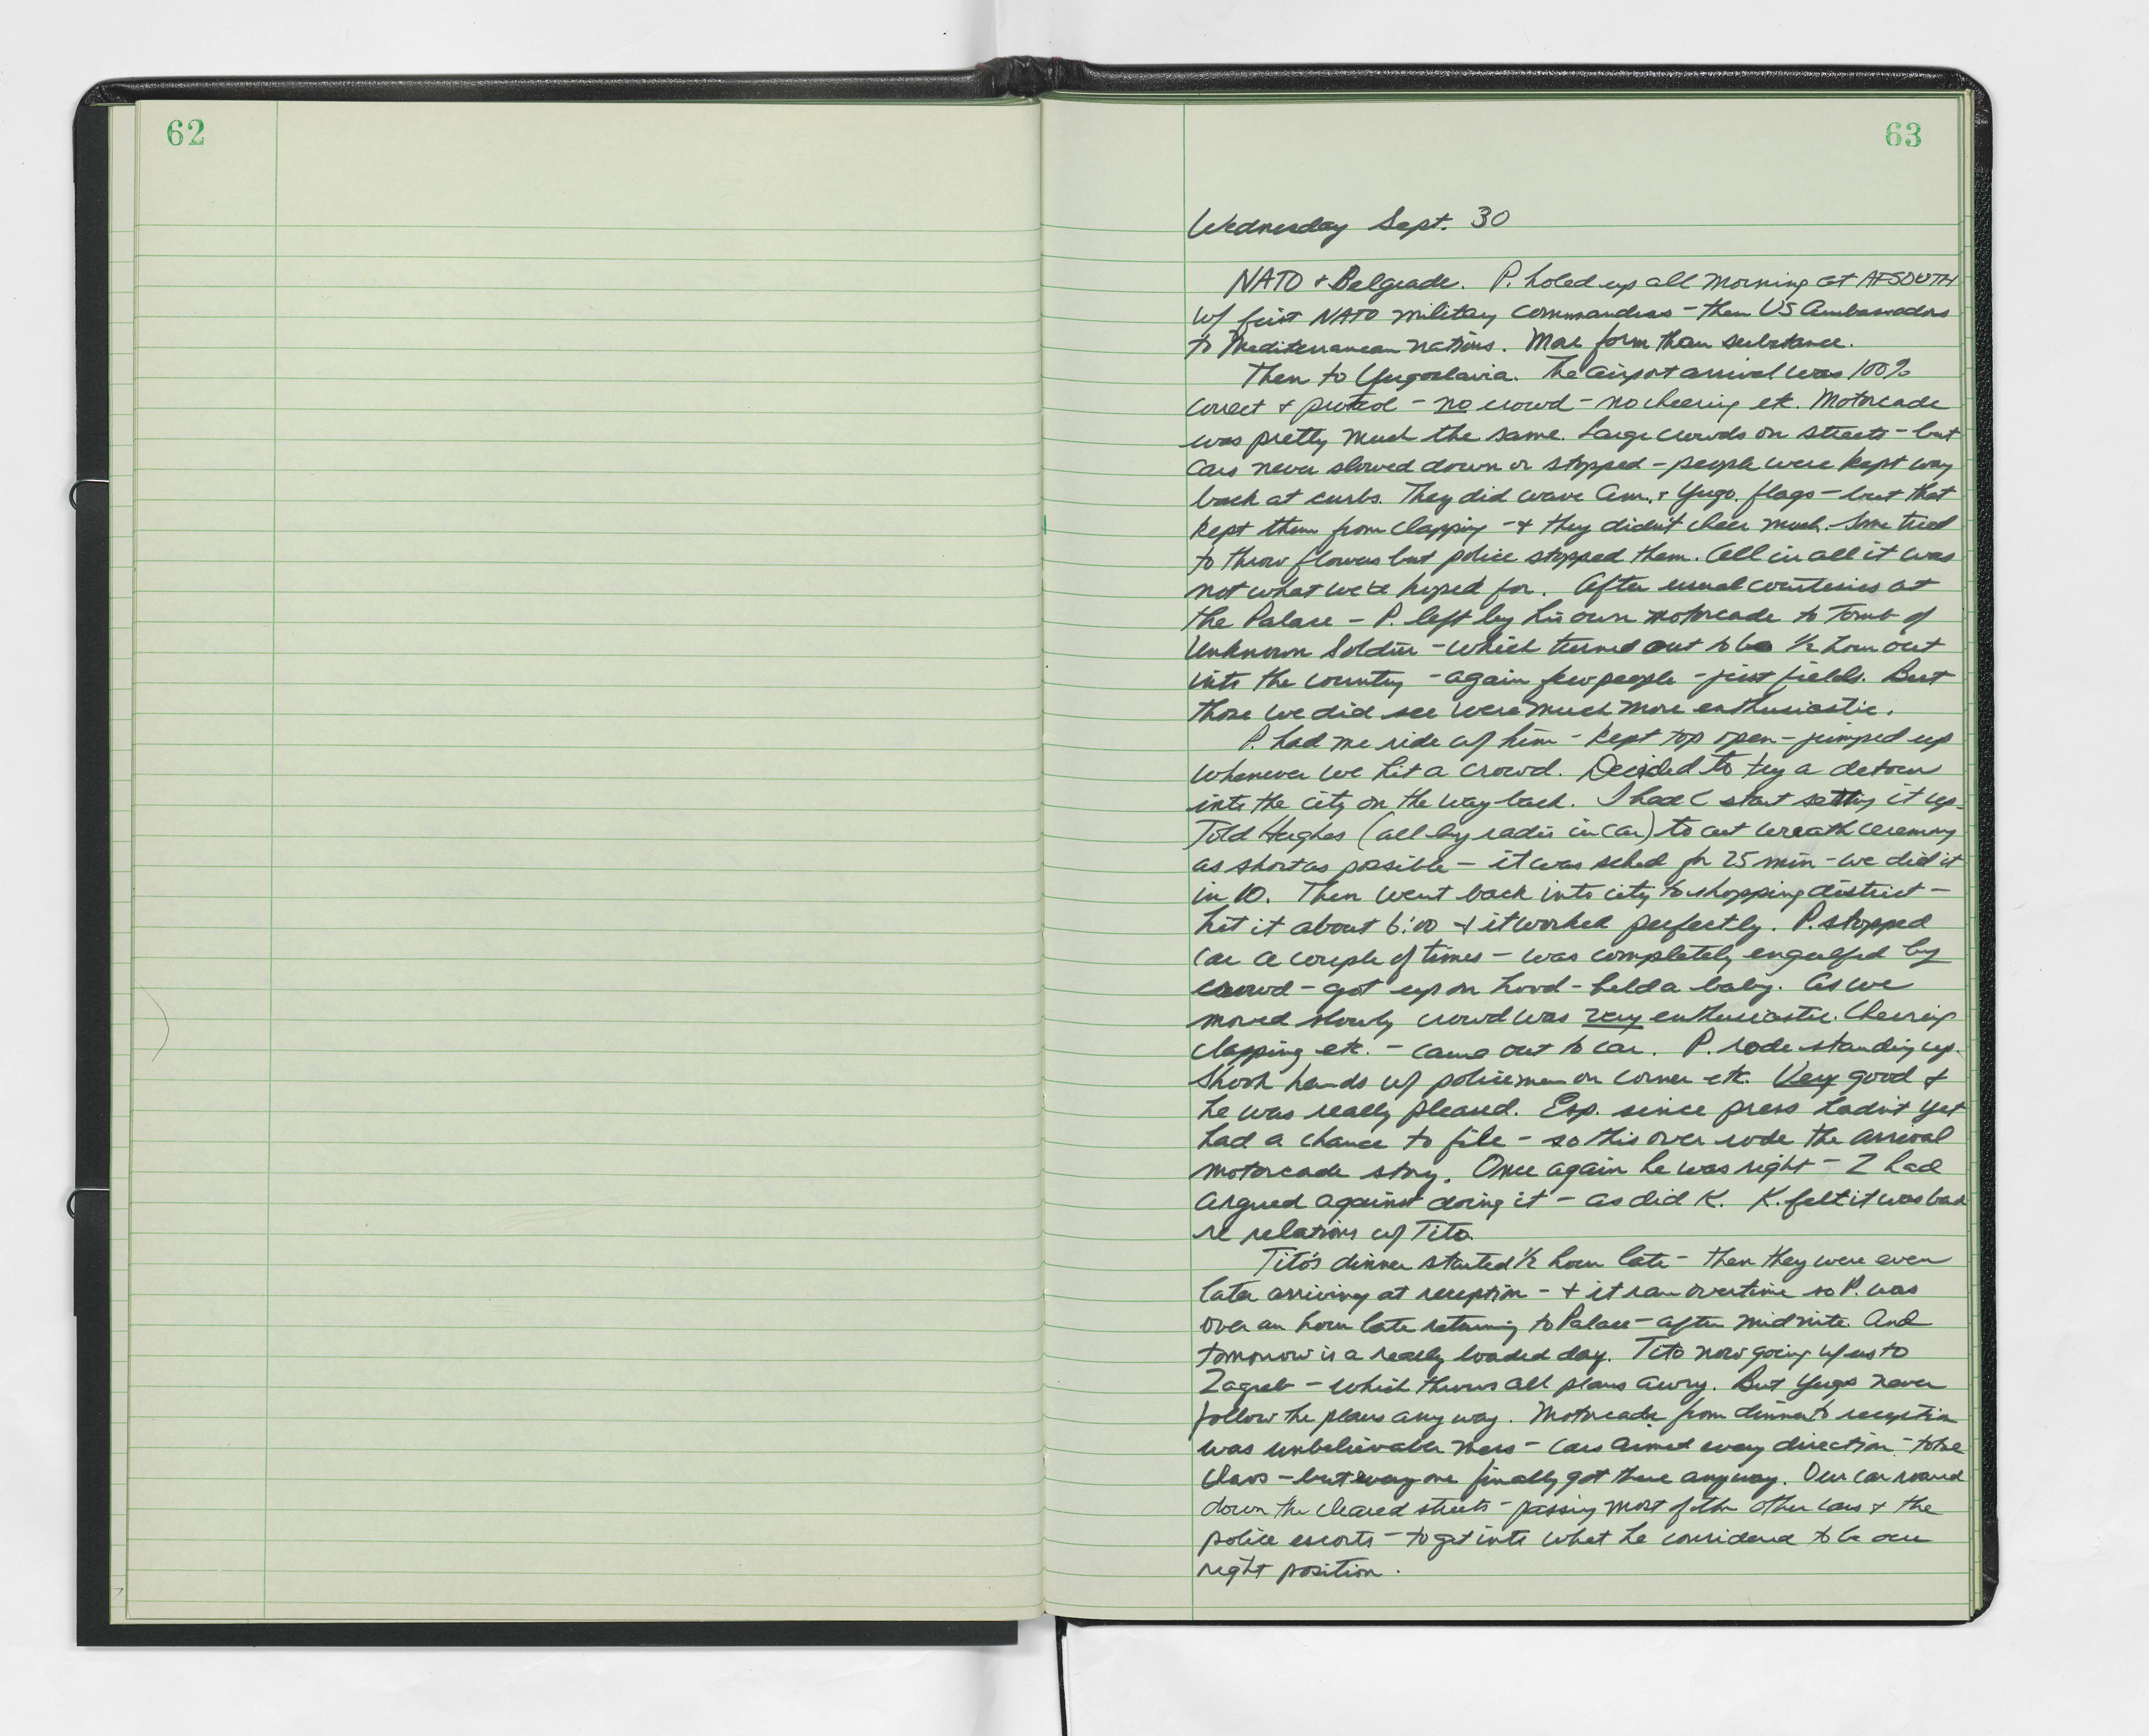 62
63
Wednesday Sept. 30
NATO + Belgrade. P. holed up all morning at AFSOUTH
w/ first NATO military commanders - then US Ambassadors
to Mediterranean nations. More form than substance.
Then to Yugoslavia. The airport arrival was 100%
correct + protocol - no crowd - no cheering etc. Motorcade
was pretty much the same. Large crowds on streets - but
cars never slowed down or stopped - people were kept way
back at curbs. They did wave Am. + Yugo. flags - but that
kept them from clapping - + they didn't cheer much. Some tried
to throw flowers but police stopped them. All in all it was
not what we'd hoped for. After usual courtesies at
the Palace - P. left by his own motorcade to Tomb of
Unknown Soldier - which turned out to be ½ hour out
into the country - again few people - just fields. But
those we did see were much more enthusiastic.
P. had me ride w/ him - kept top open - jumped up
whenever we hit a crowd. Decided to try a detour
into the city on the way back. I had C start setting it up.
Told Hughes (all by radio in car) to cut wreath ceremony
as short as possible - it was sched for 25 min - we did it
in 10. Then went back into city to shopping district -
hit it about 6:00 + it worked perfectly. P. stopped
car a couple of times - was completely engulfed by
crowd - got up on hood - held a baby. As we
moved slowly crowd was very enthusiastic. Cheering
clapping etc. - came out to car. P. rode standing up.
Shook hands w/ policeman on corner etc. Very good +
he was really pleased. Esp. since press hadn't yet
had a chance to file - so this over rode the arrival
motorcade story. Once again he was right - I had
argued against doing it - as did K. K. felt it was bad
re relations w/ Tito.
Tito's dinner started ½ hour late - then they were even
later arriving at reception - + it ran overtime so P. was
over an hour late returning to Palace - after midnite. And
tomorrow is a really loaded day. Tito now going w/ us to
Zagreb - which throws all plans awry. But Yugos never
follow the plans any way. Motorcade from dinner to reception
was unbelievable mess - cars aimed every direction - total
chaos - but everyone finally got there anyway. Our car roared
down the cleared streets - passing most of the other cars + the
police escorts - to get into what he considered to be our
right position.